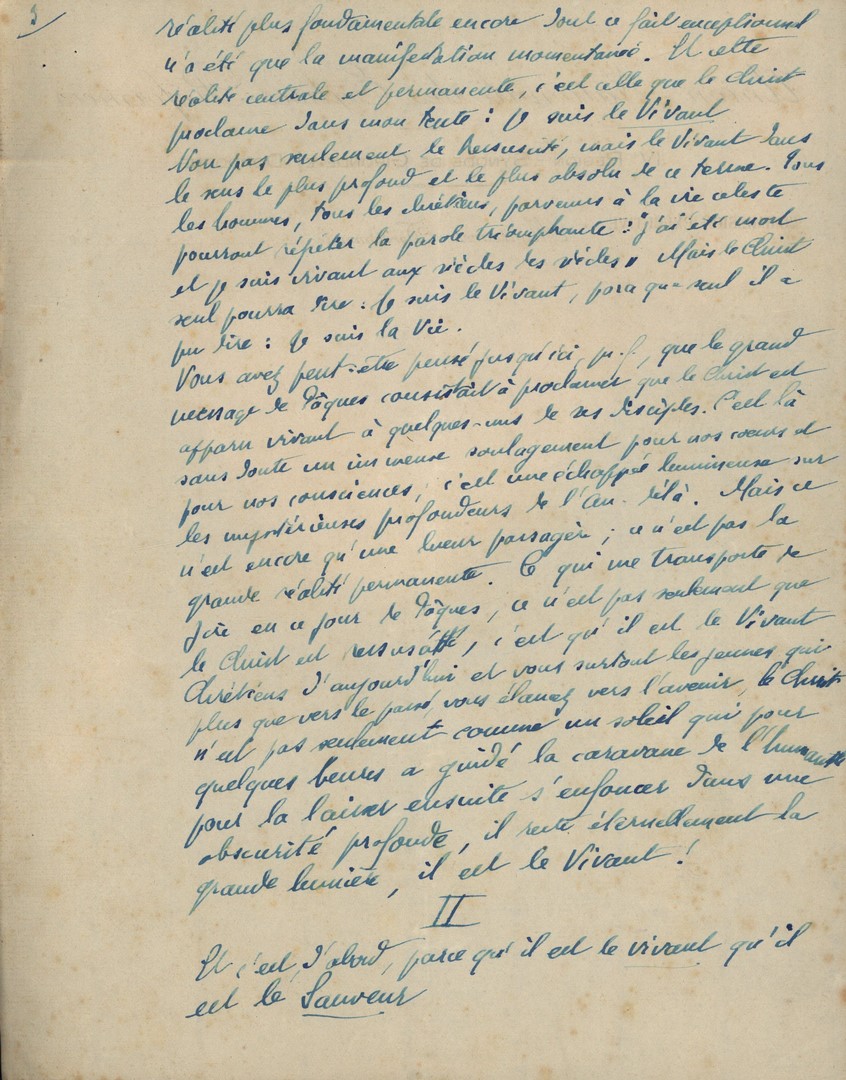 3
réalité plus fondamentale encore dont ce fait exceptionnel
n'a été que la manifestation momentanée. Et cette
réalité centrale et permanente, c'est celle que le Christ
proclame dans mon texte : Je suis le Vivant
Non pas seulement le Ressuscité, mais le Vivant dans
le sens le plus profond et le plus absolu de ce terme. Tous
les hommes, tous les chrétiens, parvenus à la vie céleste
pourront répéter la parole triomphante : "j'ai été mort
et je suis vivant aux siècles des siècles" Mais le Christ
seul pourra dire : Je suis le Vivant, parce que seul il a
pu dire : Je suis la Vie.
Vous avez peut-être pensé jusqu'ici, m. f., que le grand
message de Pâques consistait à proclamer que le Christ est
apparu vivant à quelques-uns de ses disciples. C'est là
sans doute un immense soulagement pour nos cœurs et
pour nos consciences, c'est une échappée lumineuse sur
les mystérieuses profondeurs de l'Au-delà. Mais ce
n'est encore qu'une lueur passagère ; ce n'est pas la
grande réalité permanente. Ce qui me transporte de
joie en ce jour de Pâques, ce n'est pas seulement que
le Christ est ressuscité, c'est qu'il est le Vivant
Chrétiens d'aujourd'hui et vous surtout les jeunes qui
plus que vers le passé, vous élancez vers l'avenir, le Christ
n'est pas seulement comme un soleil qui pour
quelques heures a guidé la caravane de l'humanité
pour la laisser ensuite s'enfoncer dans une
obscurité profonde, il reste éternellement la
grande lumière, il est le Vivant !
II
Et c'est d'abord, parce qu'il est le vivant qu'il
est le Sauveur